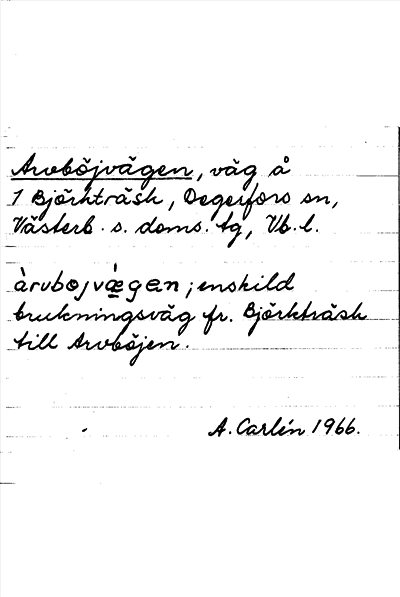 Arvböjvägen, väg å
1 Björkträsk, Degerfors sn,
Västerb. s. doms. tg, Vb. l.
àrvbojvæ̀gen; enskild
brukningsväg fr. Björkträsk
till Arvböjen.
A. Carlén 1966.